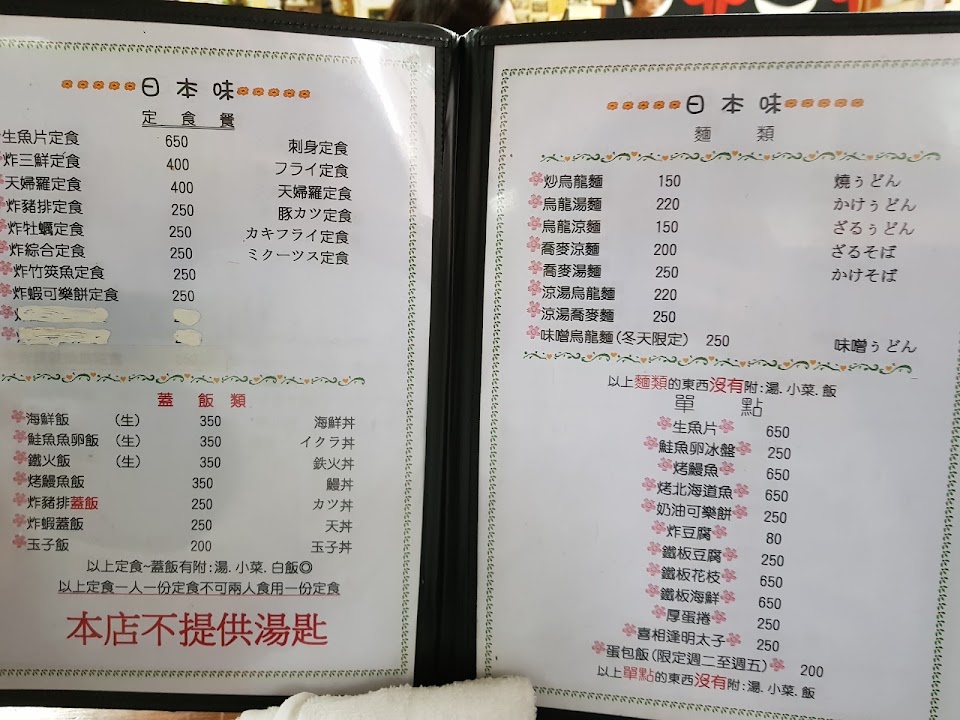 日本味
定食餐
生魚片定食 650 刺身定食
炸三鮮定食 400 フライ定食
天婦羅定食 400 天婦羅定食
炸豬排定食 250 豚カツ定食
炸牡蠣定食 250 カキフライ定食
炸綜合定食 250 ミクーツス定食
炸竹筴魚定食 250
炸蝦可樂餅定食 250
蓋飯類
海鮮飯 (生) 350 海鮮丼
鮭魚魚卵飯 (生) 350 イクラ丼
鐵火飯 (生) 350 鉄火丼
烤鰻魚飯 350 鰻丼
炸豬排蓋飯 250 カツ丼
炸蝦蓋飯 250 天丼
玉子飯 200 玉子丼
以上定食~蓋飯有附:湯.小菜.白飯◎
以上定食一人一份定食不可兩人食用一份定食
本店不提供湯匙
日本味
麵類
炒烏龍麵 150 燒ぅどん
烏龍湯麵 220 かけぅどん
烏龍涼麵 150 ざるぅどん
蕎麥涼麵 200 ざるそば
蕎麥湯麵 250 かけそば
涼湯烏龍麵 220
涼湯蕎麥麵 250
味噌烏龍麵(冬天限定) 250 味噌ぅどん
以上麵類的東西沒有附:湯.小菜.飯
單點
生魚片 650
鮭魚卵冰盤 250
烤鰻魚 650
烤北海道魚 650
奶油可樂餅 250
炸豆腐 80
鐵板豆腐 250
鐵板花枝 650
鐵板海鮮 650
厚蛋捲 250
喜相逢明太子 250
蛋包飯(限定週二至週五) 200
以上單點的東西沒有附:湯.小菜.飯